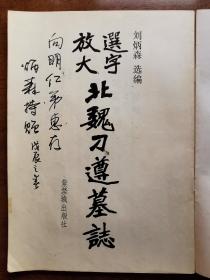 刘炳森 选编
選字
放大
北魏刁遵墓誌
紫禁城出版社
向明仁弟惠存
炳森持贈 戊辰之春